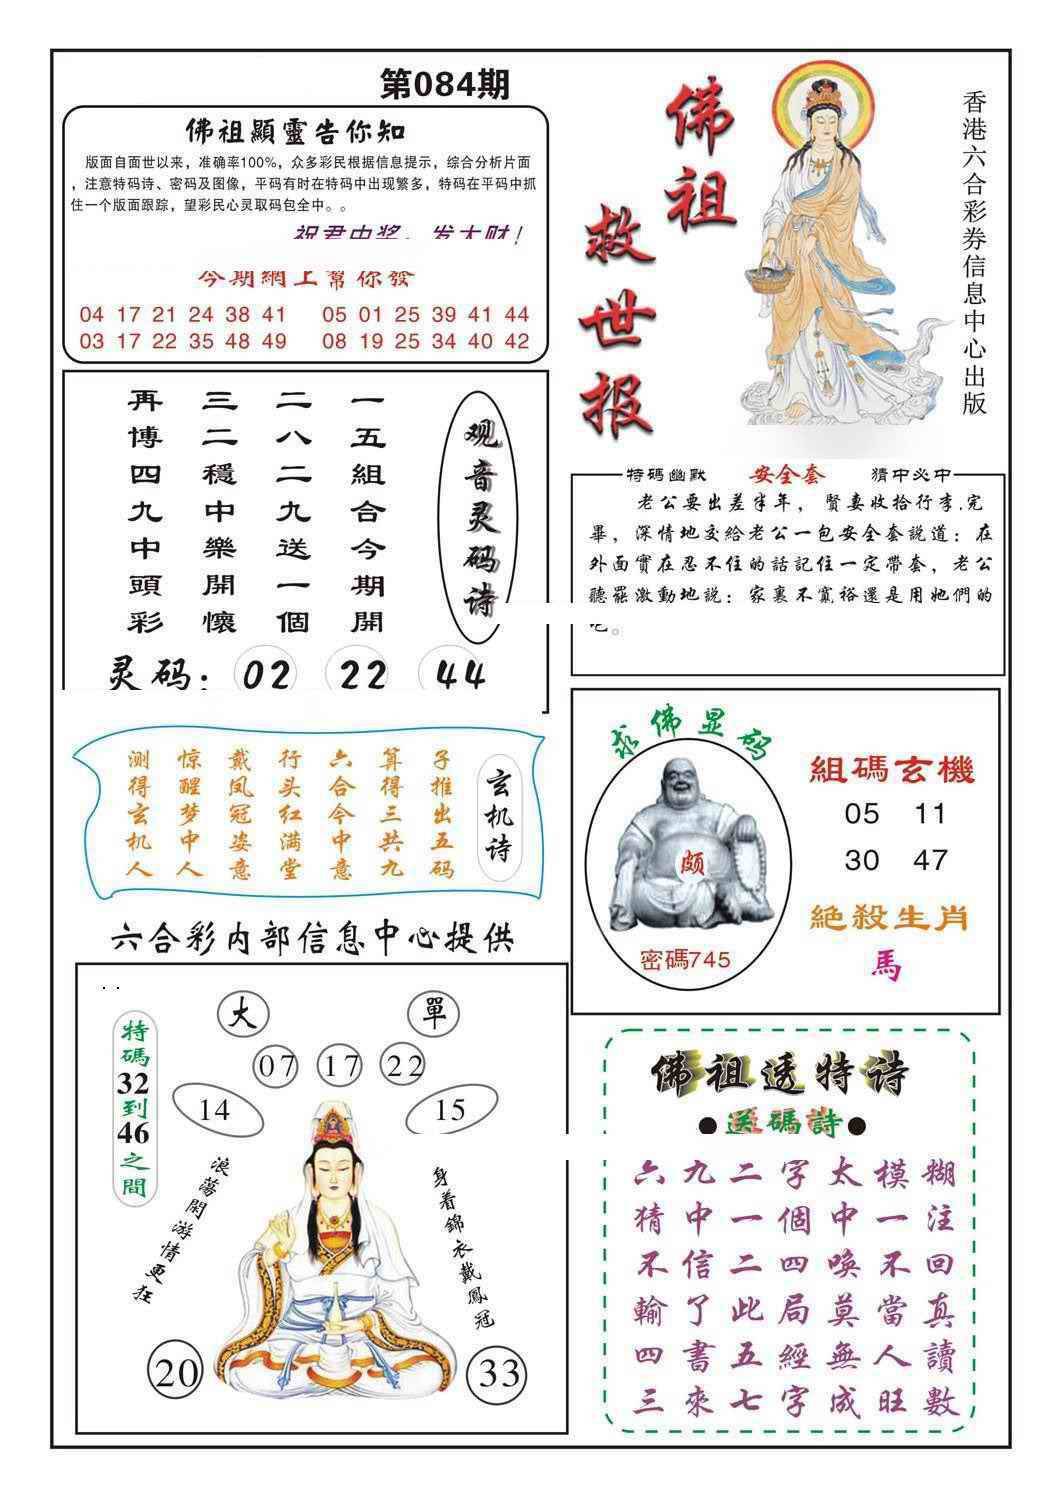 第084期
佛祖顯靈告你知
版面自面世以来，准确率100%，众多彩民根据信息提示，综合分析片面
，注意特码诗、密码及图像，平码有时在特码中出现繁多，特码在平码中抓
住一个版面跟踪，望彩民心灵取码包全中。。
祝君中奖，发大财！
今期網上幫你發
04 17 21 24 38 41 05 01 25 39 41 44
03 17 22 35 48 49 08 19 25 34 40 42
佛祖
救世报
香港六合彩券信息中心出版
观音灵码诗
一五組合今期開
二八二九送一個
三二穩中樂開懷
再博四九中頭彩
灵码：02 22 44
特碼幽默 安全套 猜中必中
老公要出差半年，賢妻收拾行李.完
畢，深情地交給老公一包安全套說道：在
外面實在忍不住的話記住一定帶套，老公
聽罷激動地説：家裏不寬裕還是用她們的
吧。
玄机诗
子推出五码
算得三共九
六合今中意
行头红满堂
戴凤冠姿意
惊醒梦中人
测得玄机人
求佛显码
颇
密碼745
組碼玄機
05 11
30 47
絕殺生肖
馬
六合彩内部信息中心提供
大 單
07 17 22
14 15
特碼32到46之間
浪蕩閑游情更狂
身着錦衣戴鳳冠
20 33
佛祖透特诗
●送碼詩●
六九二字太模糊
猜中一個中一注
不信二四喚不回
輸了此局莫當真
四書五經無人讀
三來七字成旺數